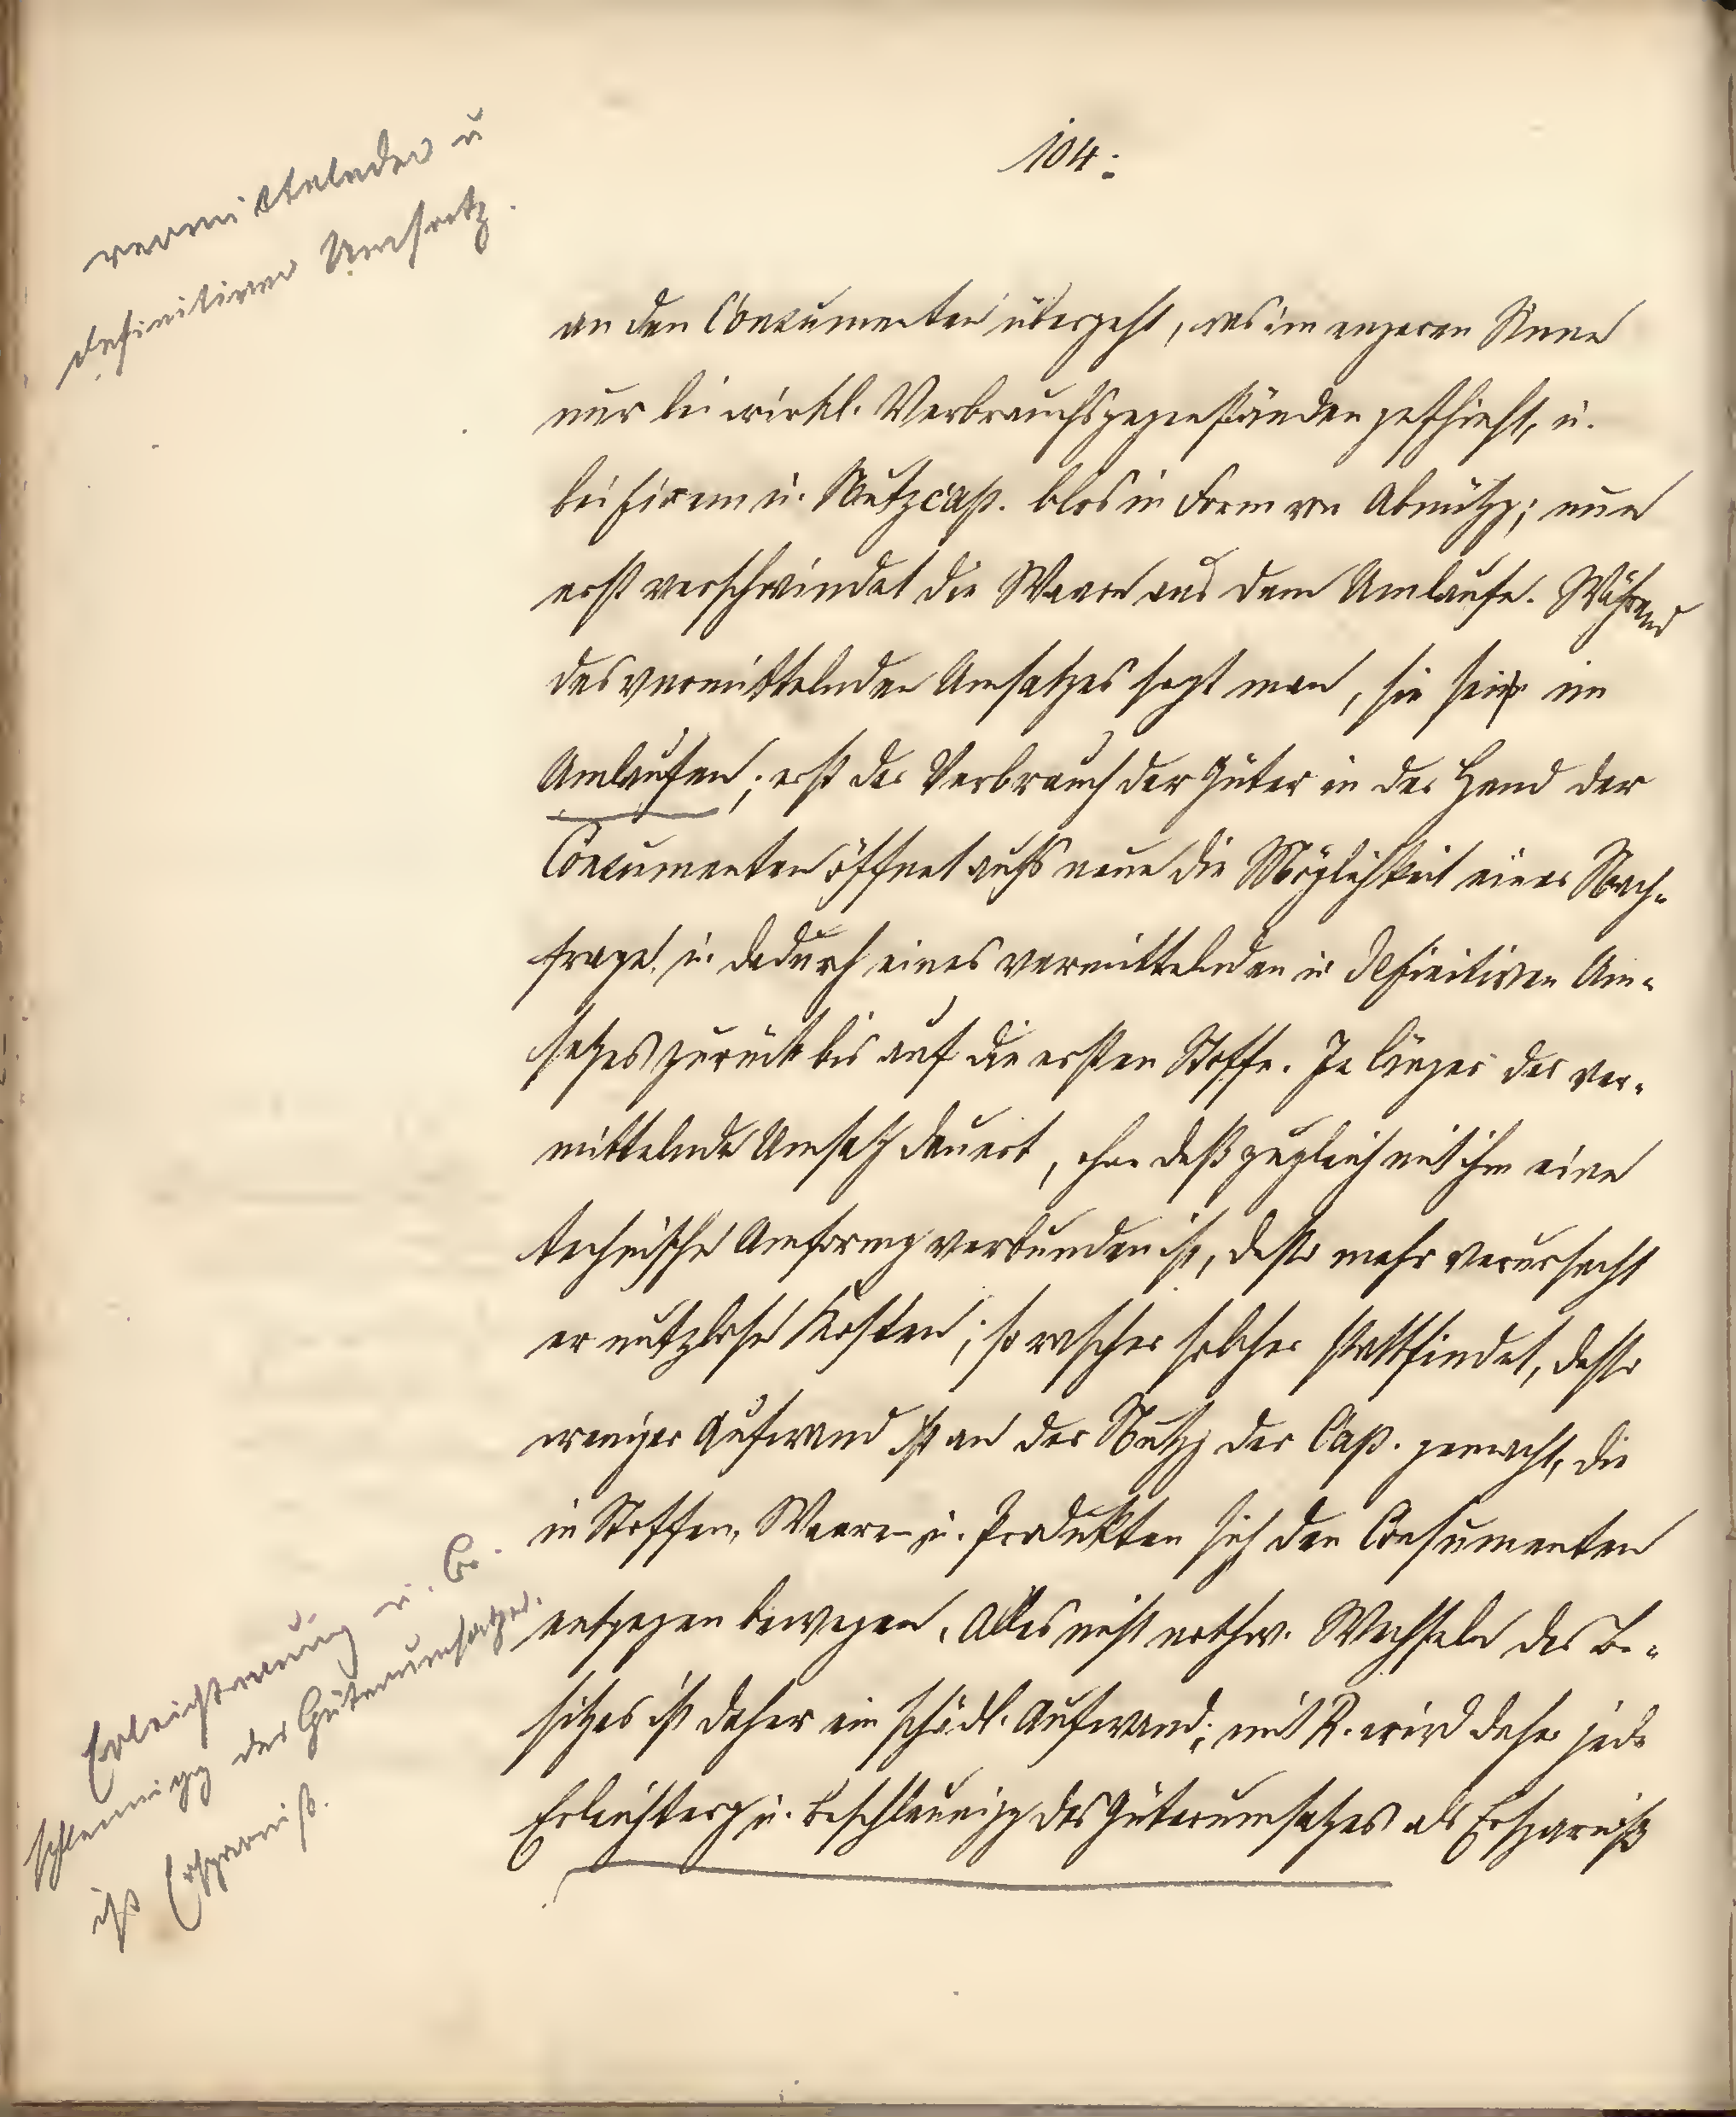 104.
vermittelnder u
definitiver Umsatz.
an den Consumenten übergeht, was im engeren Sinne
nur bei wirkl. Verbrauchsgegenständen geschieht, u.
bei fixem u. Nutzcap. blos in Form von Abnützg; nun
erst verschwindet die Waare aus dem Umlaufe. Während
des vermittelnden Umsatzes sagt man, sie sei im
Umlaufen; erst der Verbrauch der Güter in der Hand der
Consumenten öffnet aufs neue die Möglichkeit einer Nach-
frage u. dadurch eines vermittelnden u definitiven Um-
satzes zurück bis auf die ersten Stoffe. Je länger der ver-
mittelnde Umsatz dauert, ohne daß zugleich mit ihm eine
technische Umformg verbunden ist, desto mehr verursacht
er nutzlose Kosten; so rascher solcher stattfindet, desto
weniger Aufwand ist an der Nutzg der Cap. gemacht, die
in Stoffen, Waaren u. Produkten sich den Consumenten
entgegen bewegen. Alles nicht nothw. Wechseln des Be-
sitzes ist daher ein schädl. Aufwand; mit R. wird daher jede
Erleichterg u. Beschleunigg des Güterumsatzes als Ersparniß
Erleichterung u. Be-
schleunigg des Güterumsatzes
ist Ersparniß.